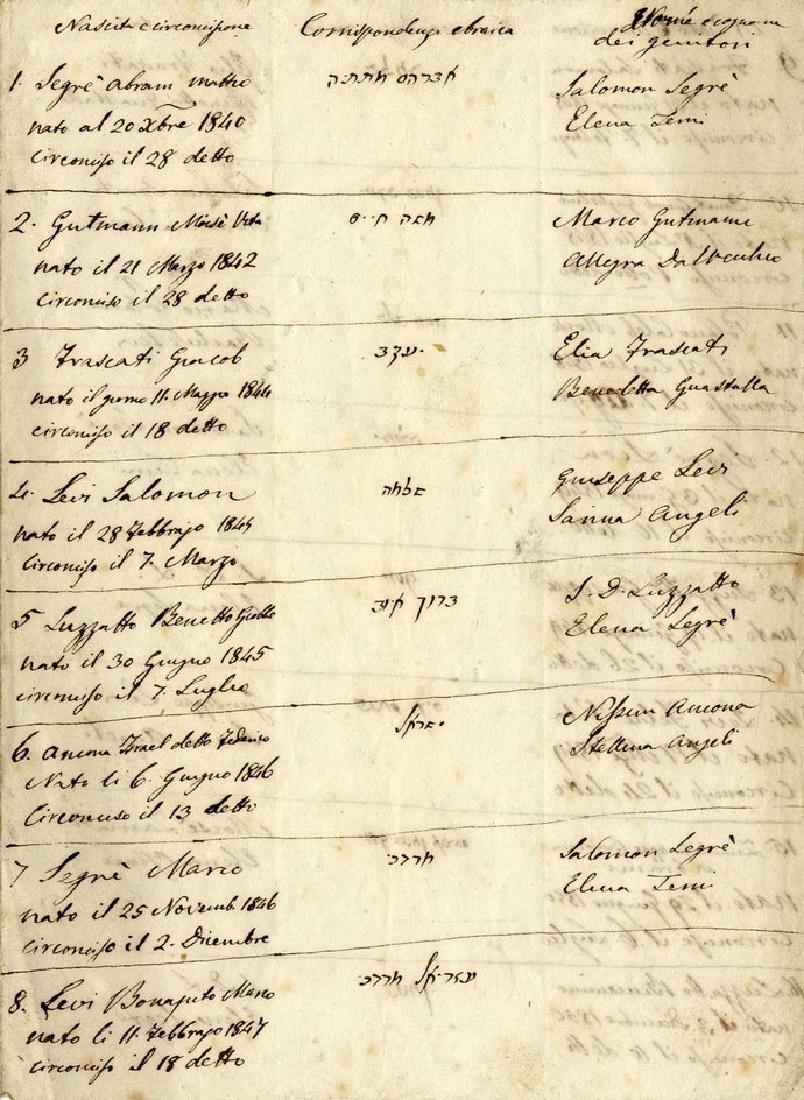 Nascita e circoncisione Corrispondenza ebraica Nome e cognome
dei genitori
1. Segrè Abram Matteo אברהם מתתיה Salomon Segrè
nato al 20 Xbre 1840 Elena Temi
circonciso il 28 detto
2. Gutmann Moisè Vita משה חיים Marco Gutmann
nato il 21 Marzo 1842 Allegra Dal Vecchio
circonciso il 28 detto
3 Frascati Giacob יעקב Elia Frascati
nato il giorno 11 Maggio 1844 Benedetta Guastalla
circonciso il 18 detto
4. Levi Salomon שלמה Giuseppe Levi
nato il 28 Febbrajo 1845 Sanna Angeli
circonciso il 7. Marzo
5 Luzzatto Benetto ברוך איוב S. D. Luzzatto
nato il 30 Giugno 1845 Elena Segrè
circonciso il 7. Luglio
6. Ancona Israel detto Federico ישראל Nissim Ancona
Nato li 6. Giugno 1846 Stellina Angeli
Circonciso il 13 detto
7 Segrè Marco מרדכי Salomon Segrè
nato il 25 Novemb. 1846 Elena Temi
circonciso il 2. Dicembre
8. Levi Bonajuto Marco עזריאל מרדכי
nato li 11. Febbrajo 1847
circonciso il 18 detto